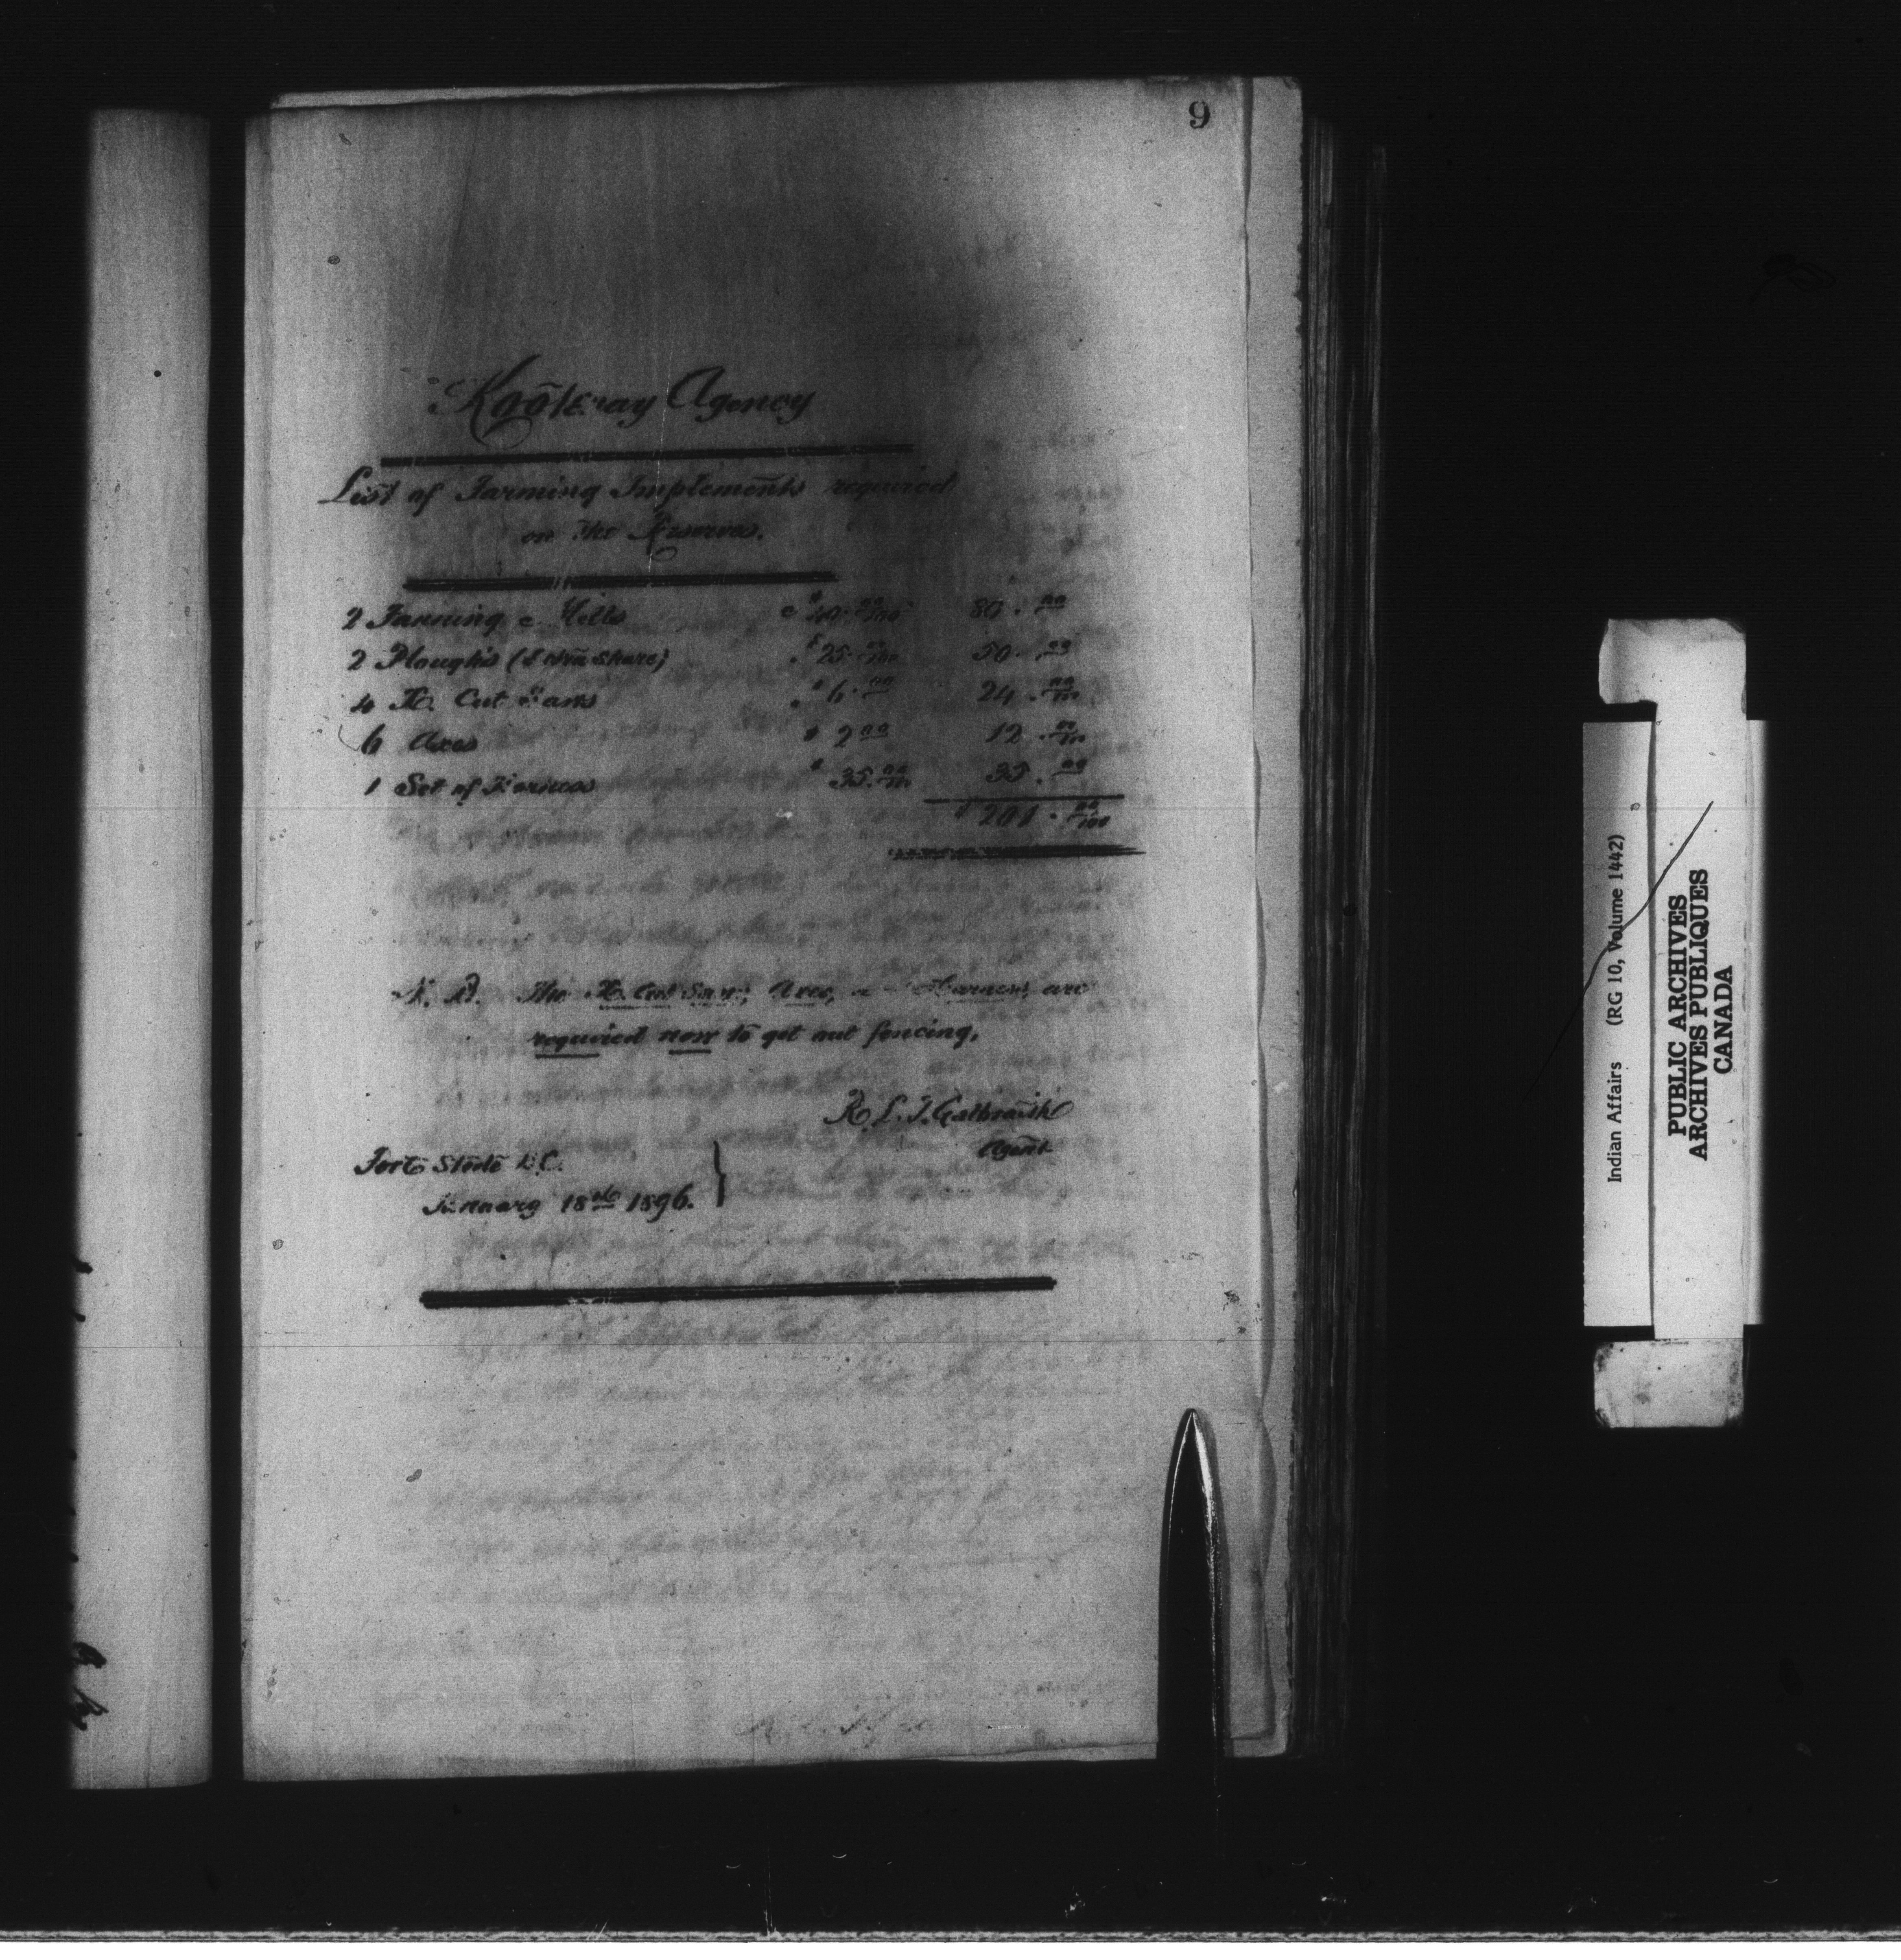 9
Kootenay Agency
List of Farming Implements required
on the Reserves.
2 Fanning Mills @ $40.00/100 80.00
2 Ploughs (Extra Share) " $25.00/100 50.00
4 X. Cut Saws " $6.00 24.00/100
6 Axes $2.00 12.00/100
1 Set of Harness $35.00/100 35.00
$201.00/100
N.B. The X. Cut Saws, Axes, & Harness, are
required now to get out fencing.
R. L. T. Galbraith
Agent
Fort Steele B.C.
January 18th 1896.
Indian Affairs (RG 10, Volume 1442)
PUBLIC ARCHIVES
ARCHIVES PUBLIQUES
CANADA